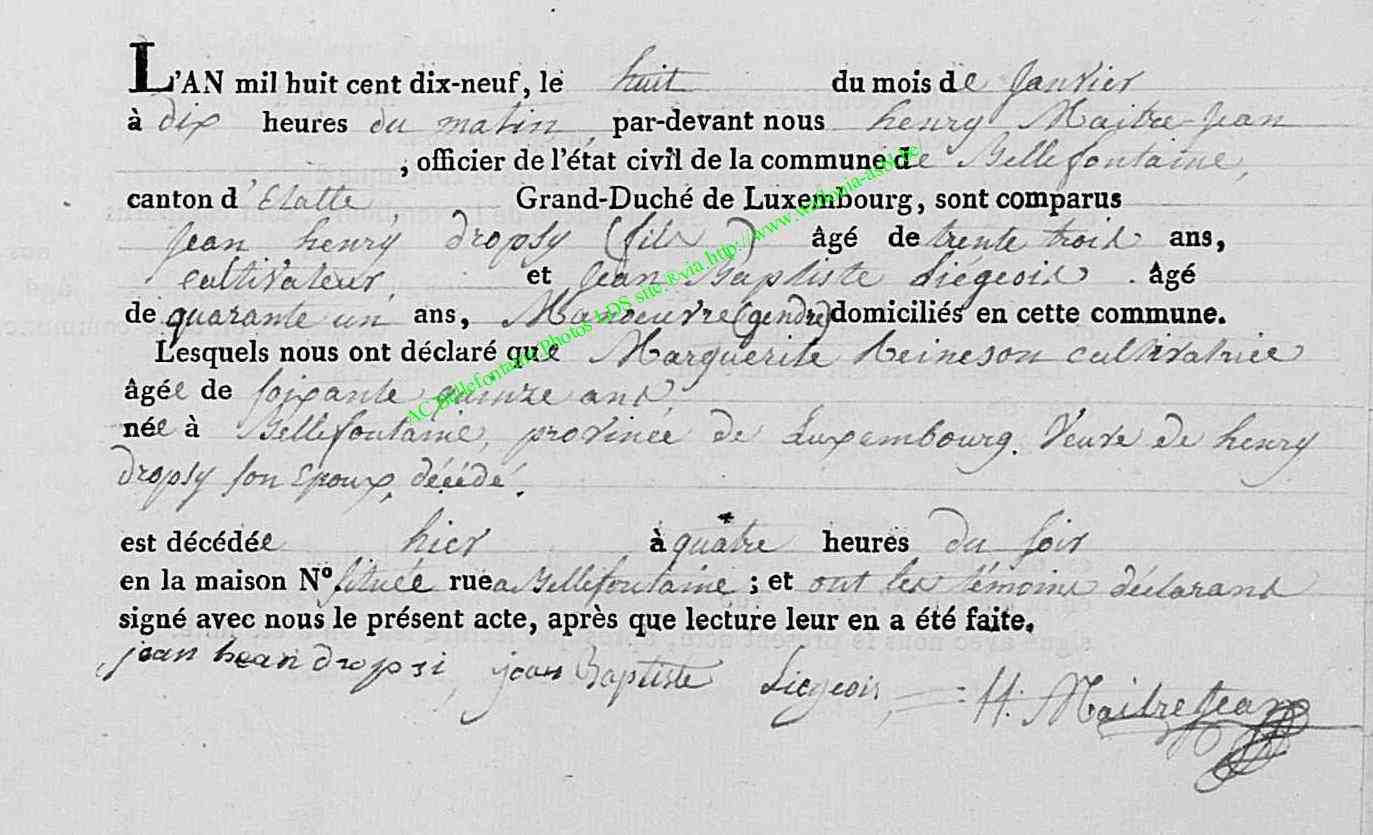 L'AN mil huit cent dix-neuf, le huit du mois de Janvier
à dix heures du matin, par-devant nous henry Maitre-Jean
, officier de l'état civil de la commune de Bellefontaine,
canton d'Etalle, Grand-Duché de Luxembourg, sont comparus
Jean henry dropsy (fils) âgé de trente trois ans,
cultivateur, et Jean Baptiste Liégeois âgé
de quarante un ans, Manoeuvre (gendre) domiciliés en cette commune.
Lesquels nous ont déclaré que Marguerite cultivatrice
âgée de soixante quinze ans
née à Bellefontaine, province de Luxembourg. Veuve de henry
dropsy son Epoux, décédé.
est décédée hier à quatre heures du soir
en la maison N° située rue a Bellefontaine ; et ont les témoins déclarans
signé avec nous le présent acte, après que lecture leur en a été faite.
jean hean dropsi jean Baptiste Liegeois H. MaitreJean
AC Bellefontaine Photos LDS site & via http://www.wallonia-asbl.be/